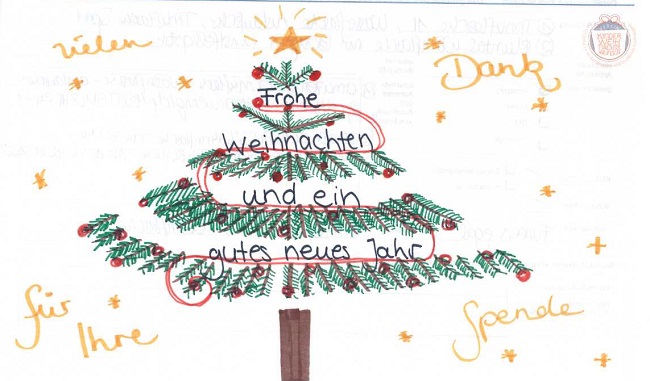 vielen
Dank
Frohe
Weihnachten
und ein
gutes neues Jahr
für
Ihre
Spende